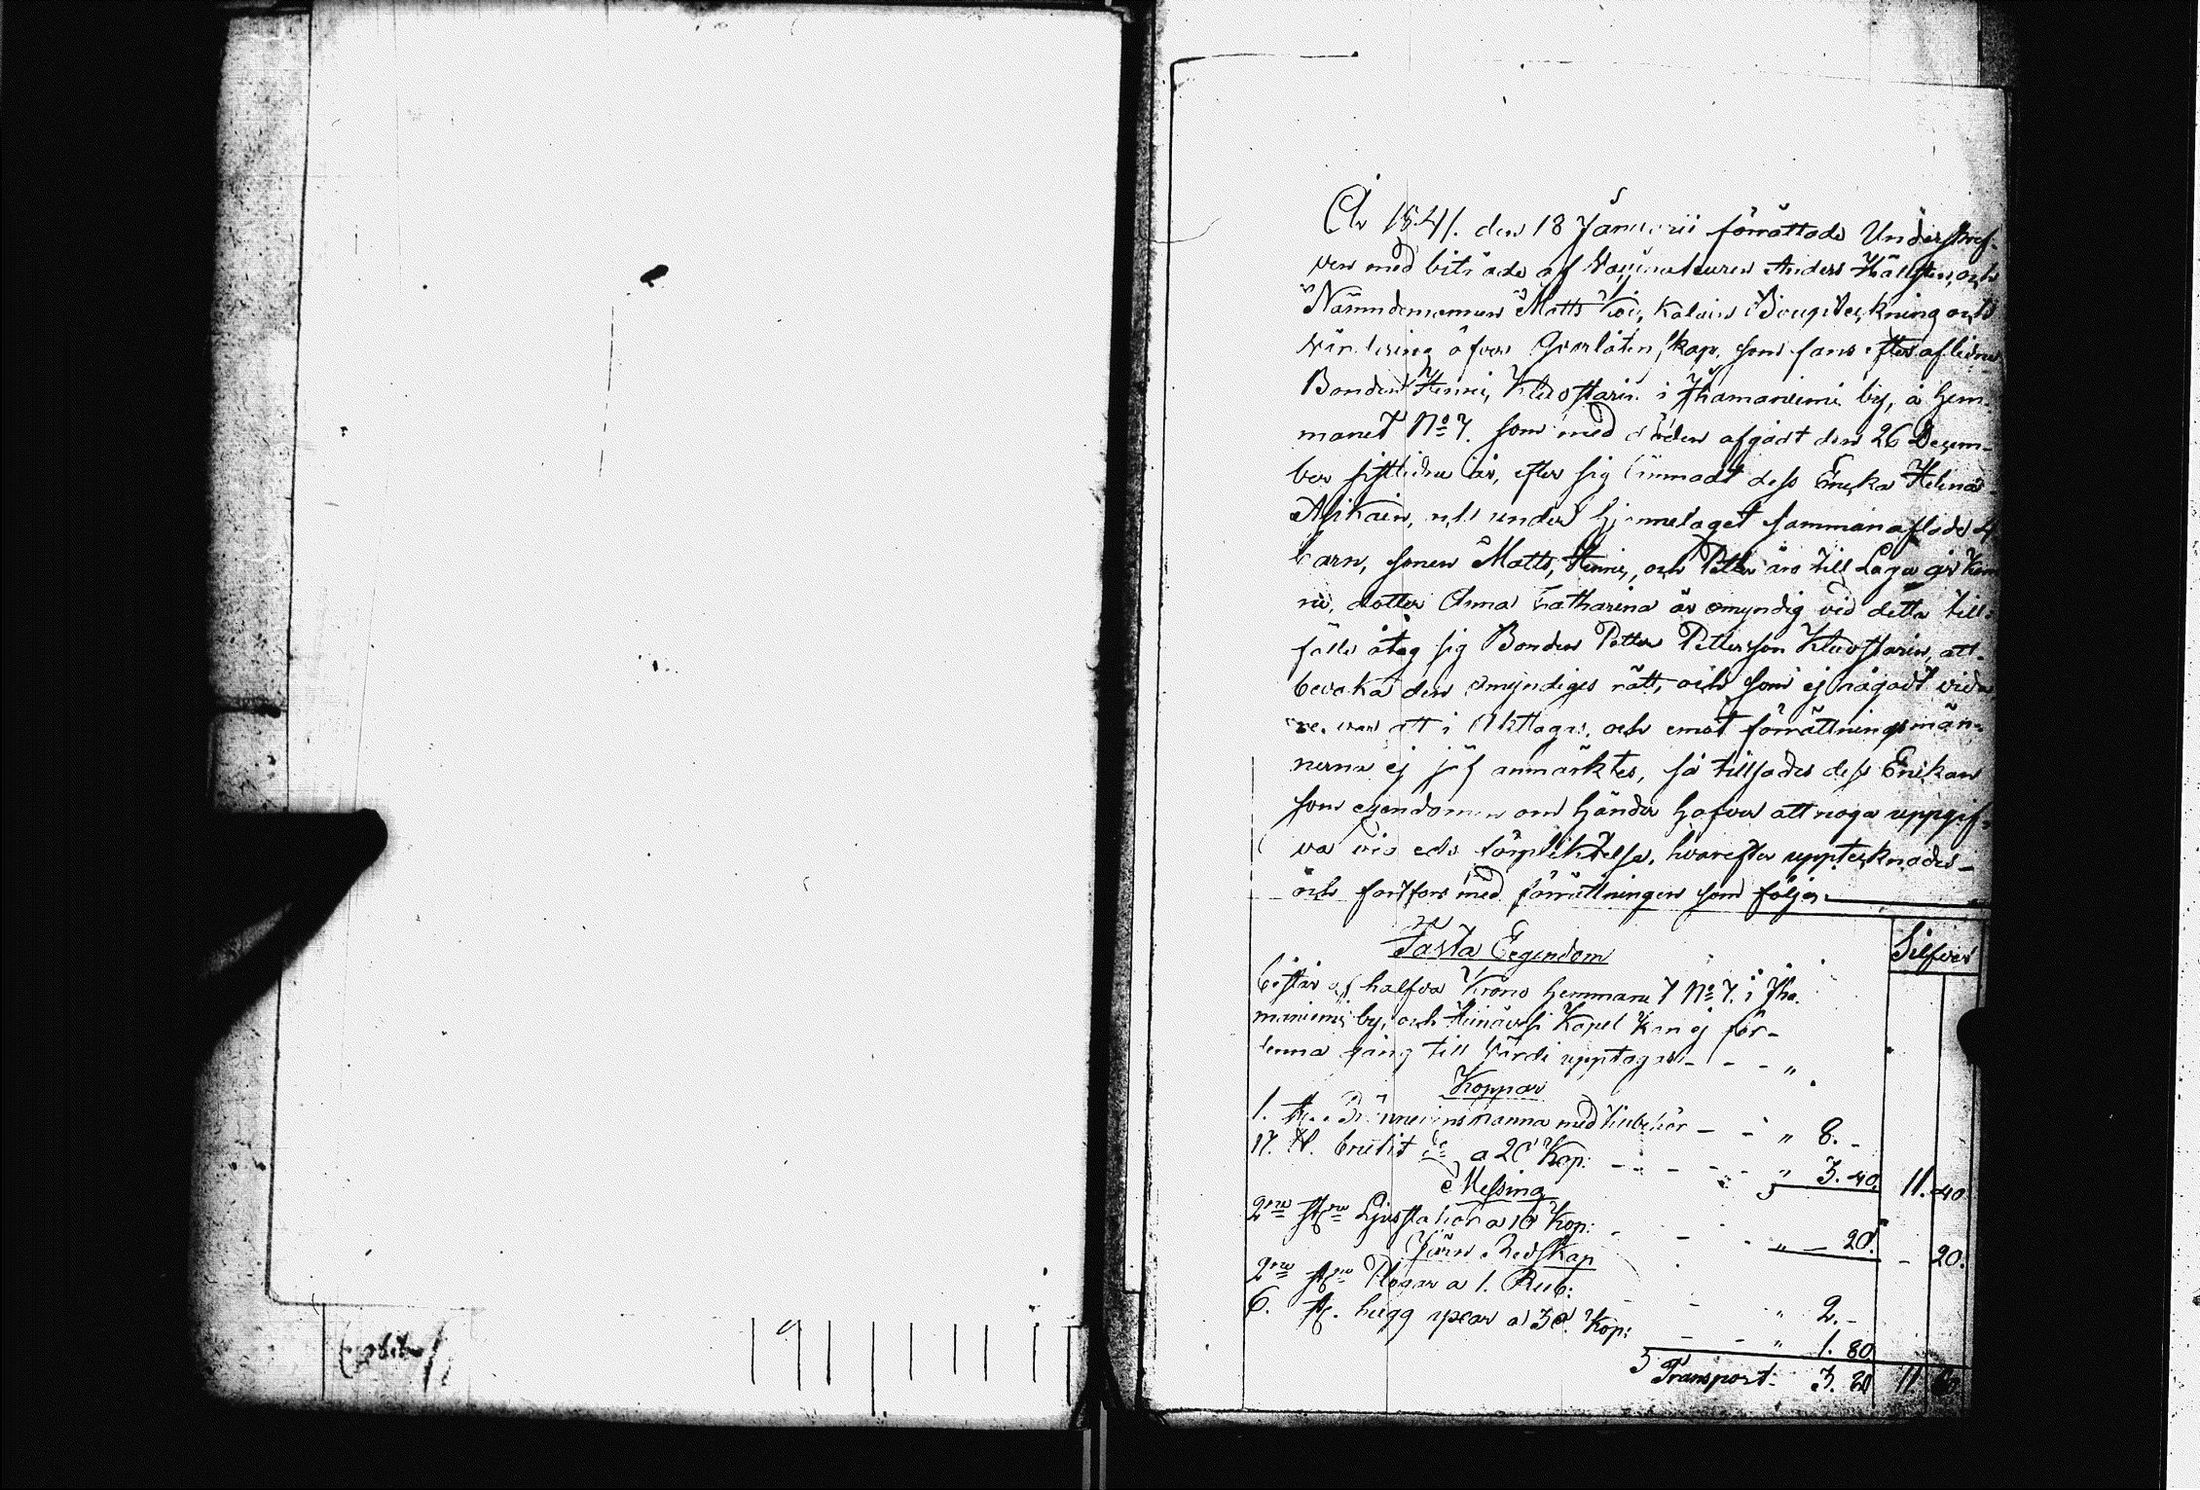 År 1841. den 18 Januarii förrättade Underskref-
ven med biträde af Vaccinateuren Anders Hällsten, och
Nämndemannen Matts Koi, kalain Bouptekning och
värdering öfver Qvarlåtenskap, som fans efter aflidne
Bonden Henric Klavostarin i Jhamaniemi by, å hem-
manet No 7. som med döden afgått den 26 Decem-
ber sistlidne år, efter sig lämnadt dess Encka Helena
Asikain, och under hjonnelaget sammanaflade 4
barn, sonen Matts, Henric, och Petter äro till Laga år kom
ne, dotter Anna Catharina är omyndig vid detta till-
fälle åtog sig Bonden Petter Pettersson Klavostarin, att
bevaka den omyndiges rätt, och som ej något vida
re var att i Akttaga, och emot förrättningsmän-
nerna ej jäf anmärktes, så tillsades dess Enkan
som egendomen om händer hafver att noga uppgif-
va vid eds förpliktelse, hvarefter upptecknades
och fortfors med förrättningen som följer
Fasta Eegendom
Silfver
Består af halfva Krono hemmanet No 7. i Jha-
maniemi by, och Kapel kan ej för
denna gång till värdi upptagas - - - "
Koppar
1. st. Brännerins panna med tilbehör - - " 8. -
17. ℔. do a 20 Kop: - - - - " 3. 40. 11. 40.
Messing
2ne st:ne Ljusstakar a 10 Kop: - - - " - 20. - 20.
Järn Redskap
2ne st:ne Plogar a 1. Rub: - - " 2. -
6. st. hugg yxar a 30. Kop: - - " 1. 80
Transport: 3. 80 11 60